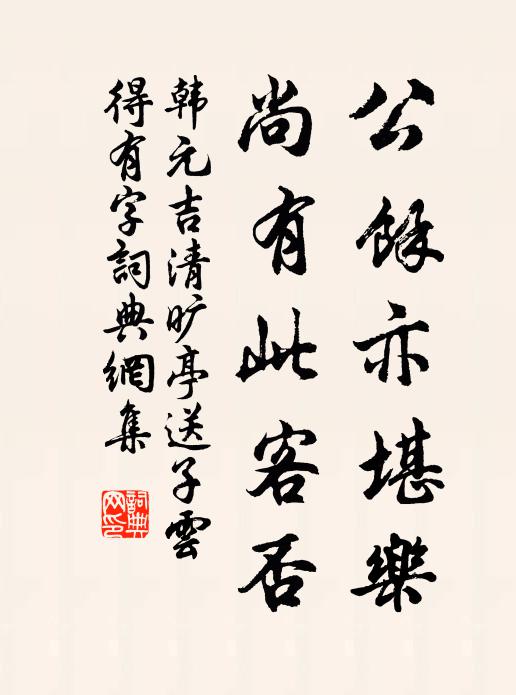 公餘亦堪樂
尚有此客否
韩元吉清旷亭送子雲
得有字詞典網集
詞典网印